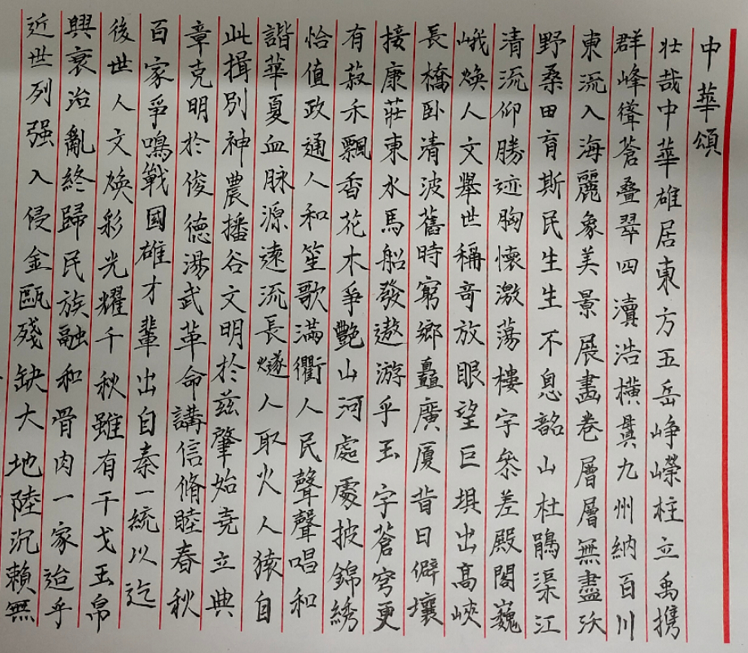 中華頌
壯哉中華雄居東方五岳峥嶸柱立禹携
群峰聳蒼叠翠四瀆浩横冀九州納百川
東流入海麗象美景展畵卷層層無盡沃
野桑田育斯民生生不息韶山杜鵑渠江
清流仰勝迹胸懷激荡樓宇叅差殿閣巍
峨焕人文舉世稱奇放眼望巨埧出高峽
長橋卧清波舊時窮鄉矗廣厦昔日僻壤
接康莊東水馬船發遨游乎玉宇蒼穹更
有菽禾飄香花木爭艷山河處處披錦綉
恰值政通人和笙歌滿衢人民聲聲唱和
諧華夏血脉源遠流長燧人取火人猿自
此揖别神農播谷文明於兹肇始尭立典
章克明於俊德湯武革命講信脩睦春秋
百家爭鳴戰國雄才輩出自秦一統以迄
後世人文焕彩光耀千秋雖有干戈玉帛
興衰治亂終歸民族融和骨肉一家迨乎
近世列强入侵金甌殘缺大地陸沉賴無